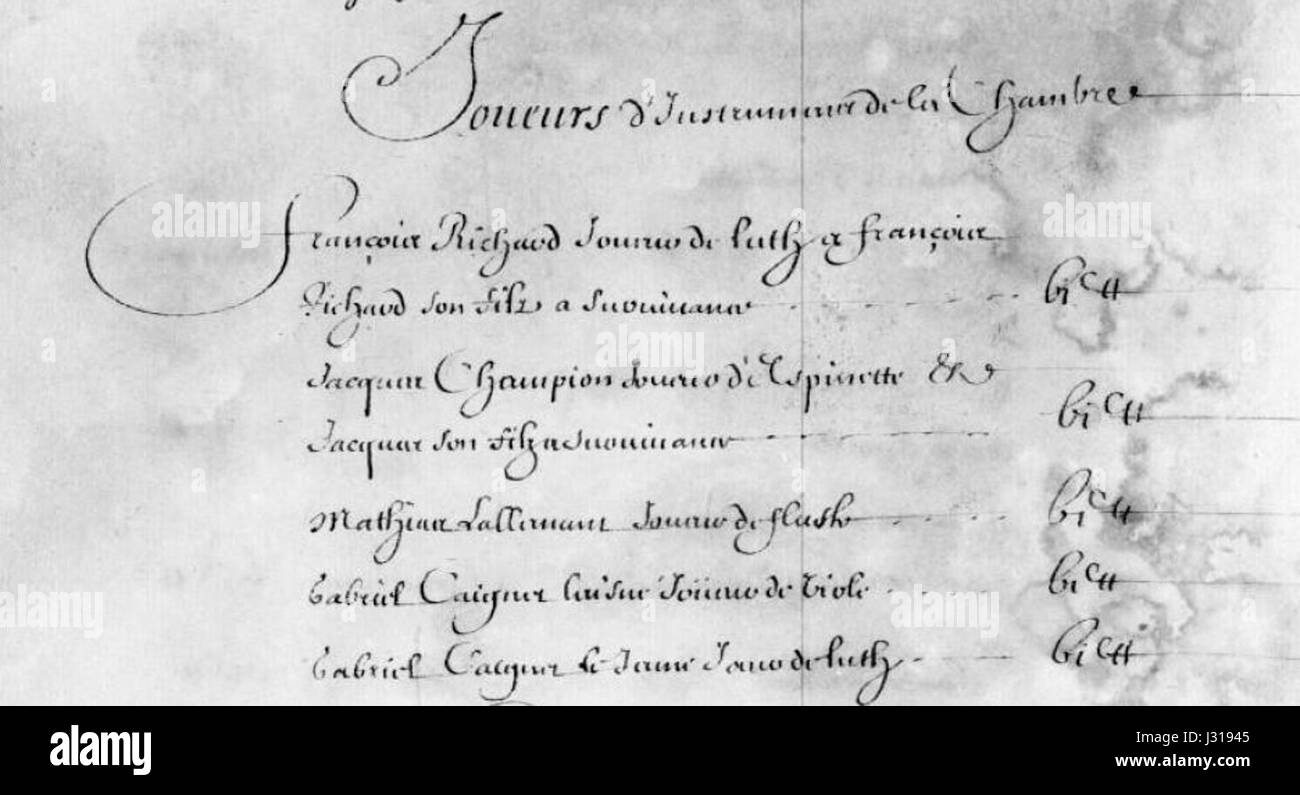 Joueurs d'Instrumans de la Chambre
François Richard Joueur de luth & François
Richard son filz a survivance vi^c ₶
Jacques Champion Joueur d'Espinette &
Jacques son filz a survivance vi^c ₶
Mathieu Lallemant Joueur de fluste vi^c ₶
Gabriel Caignet laisné Joueur de Viole vi^c ₶
Gabriel Caignet le Jeune Joueur de luth vi^c ₶
alamy stock photo
J31945
www.alamy.com